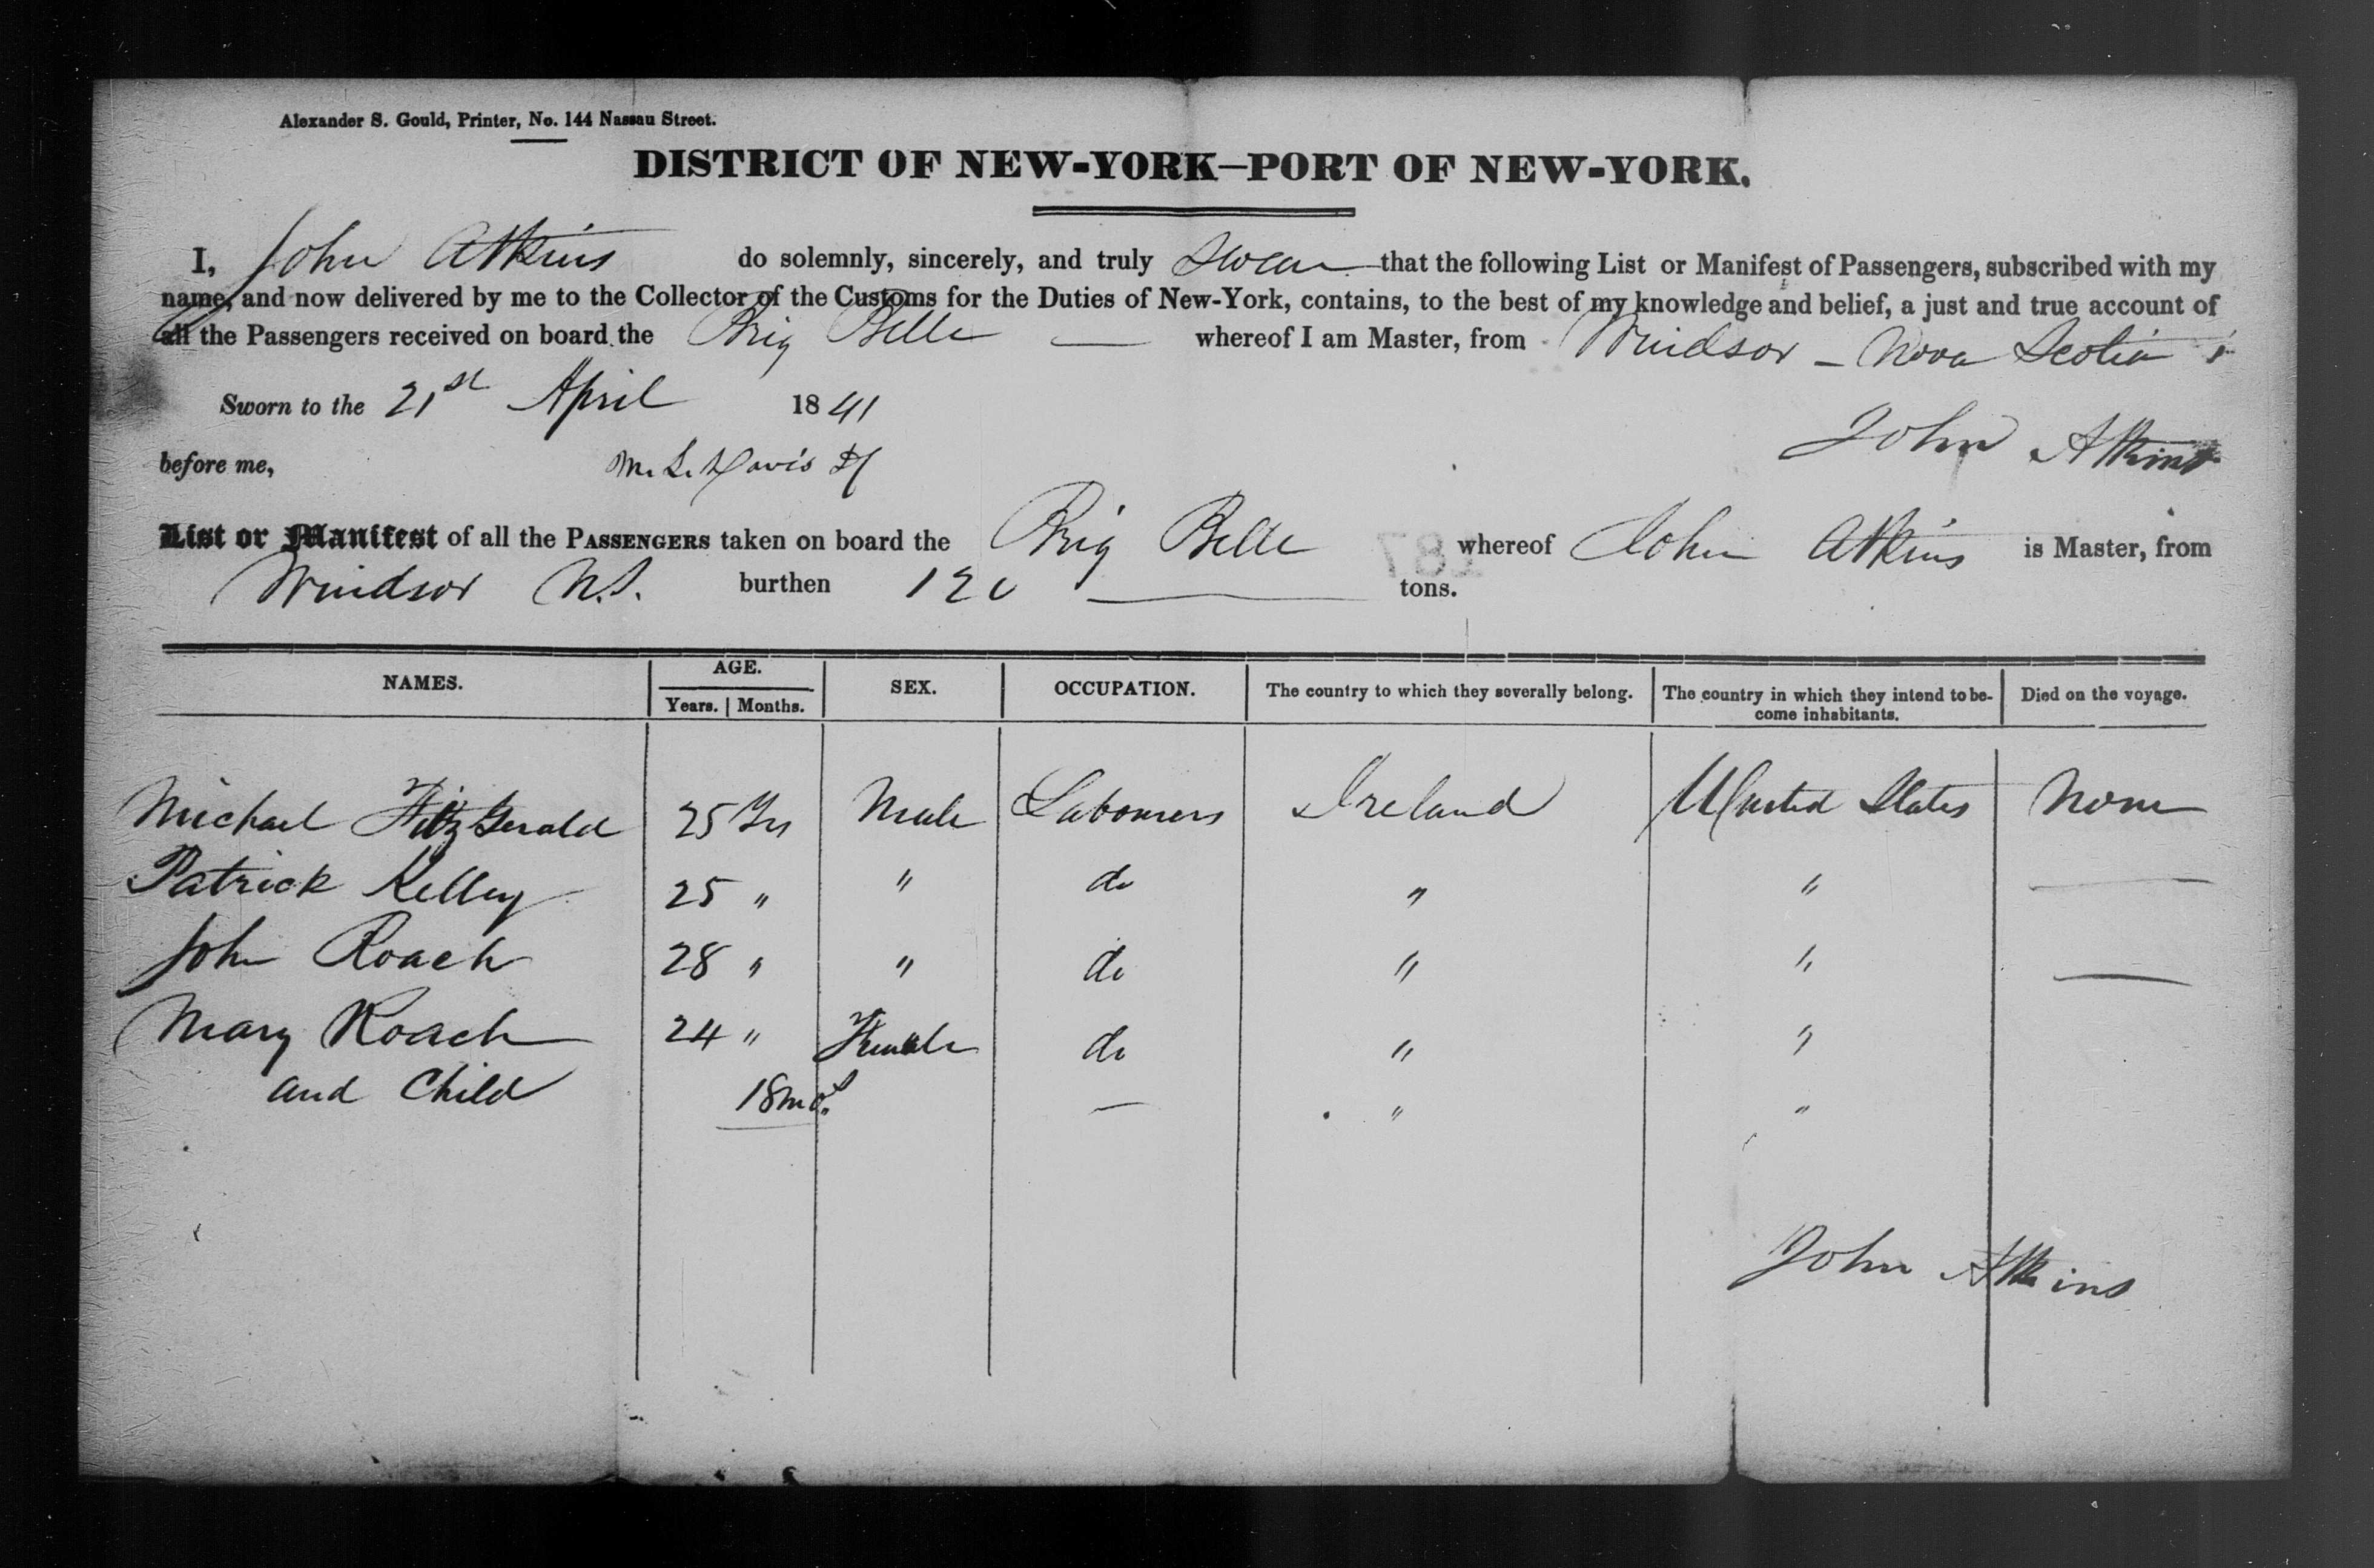 Alexander S. Gould, Printer, No. 144 Nassau Street.
DISTRICT OF NEW-YORK—PORT OF NEW-YORK.
I, John Atkins do solemnly, sincerely, and truly swear that the following List or Manifest of Passengers, subscribed with my
name, and now delivered by me to the Collector of the Customs for the Duties of New-York, contains, to the best of my knowledge and belief, a just and true account of
all the Passengers received on board the Brig Belle — whereof I am Master, from Windsor - Nova Scotia
Sworn to the 21st April 1841
John Atkins
before me, M. L. Davis
List or Manifest of all the PASSENGERS taken on board the Brig Belle whereof John Atkins is Master, from
187
Windsor N.S. burthen 120 tons.
NAMES. AGE. SEX. OCCUPATION. The country to which they severally belong. The country in which they intend to be- Died on the voyage.
Years. Months. come inhabitants.
Michael FitzGerald 25 Yrs Male Labourers Ireland United States None
Patrick Kelley 25 " " do " " —
John Roach 28 " " do " " —
Mary Roach 24 " Female do " "
and Child 18 mos. — " "
John Atkins